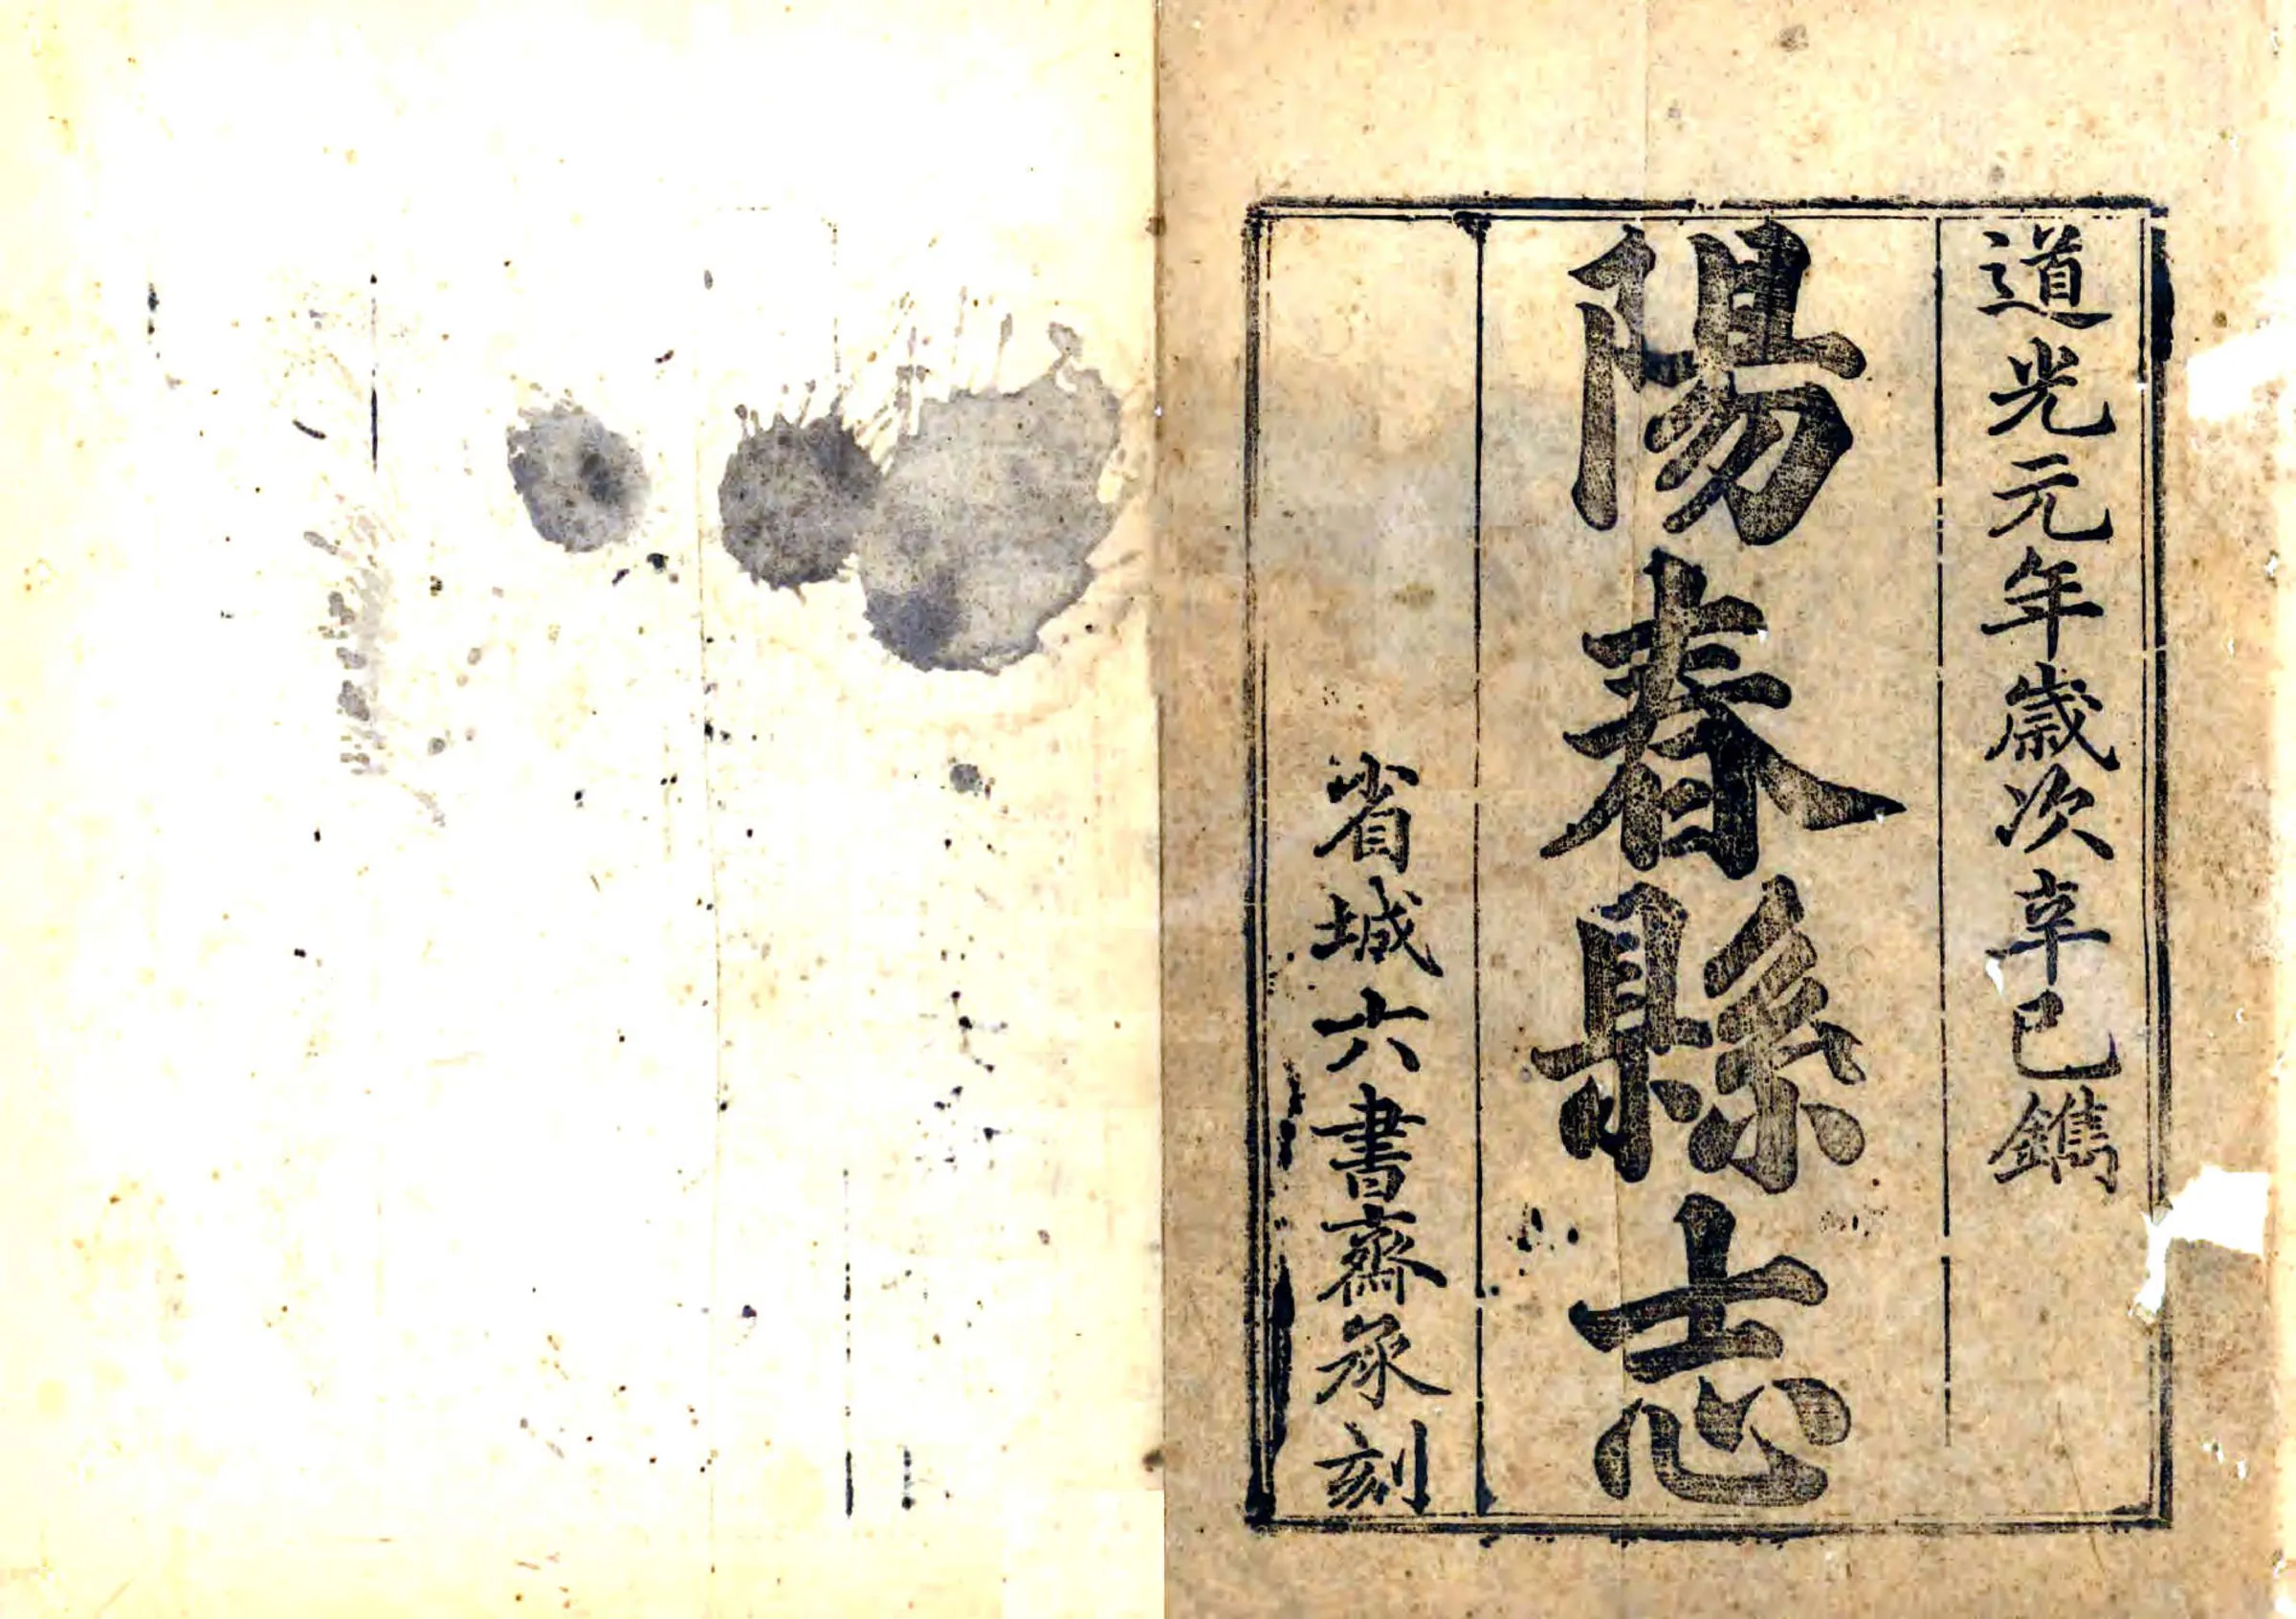 道光元年歲次辛巳鐫
陽春縣志
省城六書齋承刻